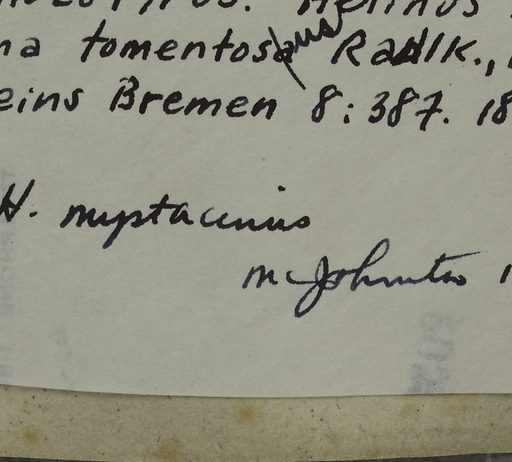 Helinus
na tomentosaus Radlk.,
eins Bremen 8:387. 18
H. mystacinus
MC Johnston 1